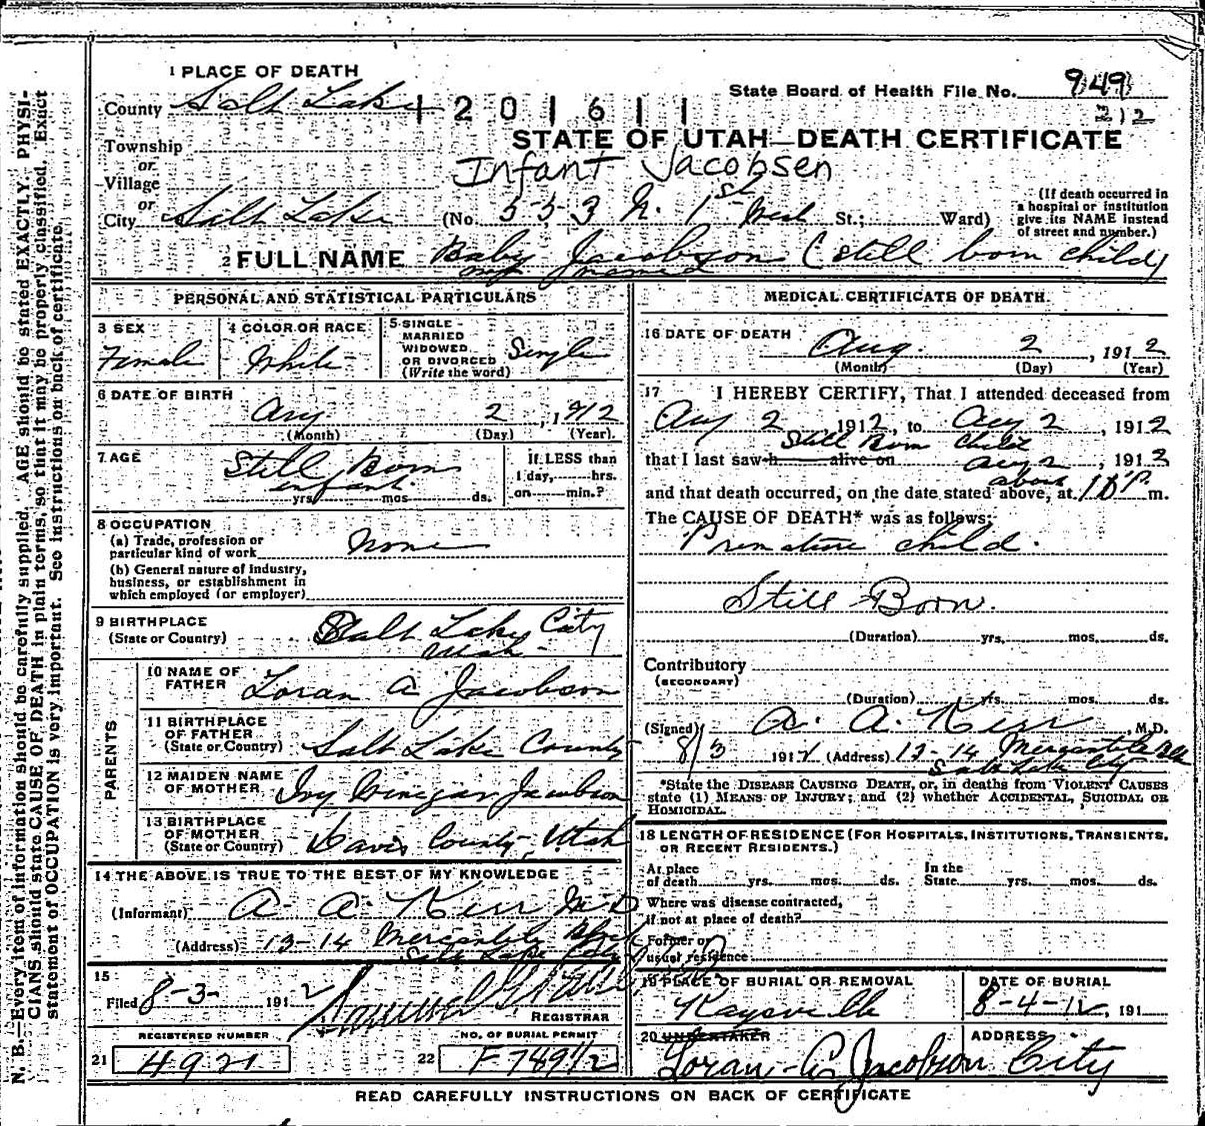 1 PLACE OF DEATH
County Salt Lake
1201611
State Board of Health File No. 949
212
STATE OF UTAH—DEATH CERTIFICATE
Township
or
Village
Infant Jacobsen
or
City Salt Lake (No. 553 N. 1st West St.; Ward)
(If death occurred in a hospital or institution give its NAME instead of street and number.)
2 FULL NAME Baby Jacobson (still born child)
not named
PERSONAL AND STATISTICAL PARTICULARS
3 SEX
Female
4 COLOR OR RACE
White
5 SINGLE MARRIED WIDOWED OR DIVORCED (Write the word)
Single
6 DATE OF BIRTH
Aug 2, 1912
(Month) (Day) (Year)
7 AGE
Still Born
infant
yrs. mos. ds.
If LESS than
1 day, hrs.
or min.?
8 OCCUPATION
(a) Trade, profession or
particular kind of work None
(b) General nature of industry,
business, or establishment in
which employed (or employer)
9 BIRTHPLACE
(State or Country)
Salt Lake City
Utah
PARENTS
10 NAME OF FATHER
Loran A Jacobson
11 BIRTHPLACE OF FATHER
(State or Country) Salt Lake County
12 MAIDEN NAME OF MOTHER
Ivy Jacobson
13 BIRTHPLACE OF MOTHER
(State or Country) Davis County, Utah
14 THE ABOVE IS TRUE TO THE BEST OF MY KNOWLEDGE
(Informant) A. A. Kerr M.D
(Address) 13-14 Mercantile Block
Salt Lake City
15
Filed 8-3- 1912
REGISTRAR
REGISTERED NUMBER
21 4921
NO. OF BURIAL PERMIT
22 F7891/2
MEDICAL CERTIFICATE OF DEATH.
16 DATE OF DEATH
Aug. 2, 1912
(Month) (Day) (Year)
17 I HEREBY CERTIFY, That I attended deceased from
Aug 2 1912, to Aug 2, 1912
Still Born Child
that I last saw h alive on Aug 2, 1912
about
and that death occurred, on the date stated above, at 10 P m.
The CAUSE OF DEATH* was as follows:
Premature child.
Still Born.
(Duration) yrs. mos. ds.
Contributory
(SECONDARY)
(Duration) yrs. mos. ds.
(Signed) A. A. Kerr, M.D.
8/3 1912 (Address) 13-14 Mercantile Blk
Salt Lake City
*State the DISEASE CAUSING DEATH, or, in deaths from VIOLENT CAUSES
state (1) MEANS OF INJURY; and (2) whether ACCIDENTAL, SUICIDAL OR
HOMICIDAL.
18 LENGTH OF RESIDENCE (FOR HOSPITALS, INSTITUTIONS, TRANSIENTS,
OR RECENT RESIDENTS.)
At place
of death yrs. mos. ds.
In the
State yrs. mos. ds.
Where was disease contracted,
if not at place of death?
Former or
usual residence
19 PLACE OF BURIAL OR REMOVAL
Kaysville
DATE OF BURIAL
8-4-12, 191
20 UNDERTAKER
Loran A Jacobson
ADDRESS
City
READ CAREFULLY INSTRUCTIONS ON BACK OF CERTIFICATE
N. B.—Every item of information should be carefully supplied. AGE should be stated EXACTLY. PHYSI-
CIANS should state CAUSE OF DEATH in plain terms, so that it may be properly classified. Exact
statement of OCCUPATION is very important. See instructions on back of certificate.